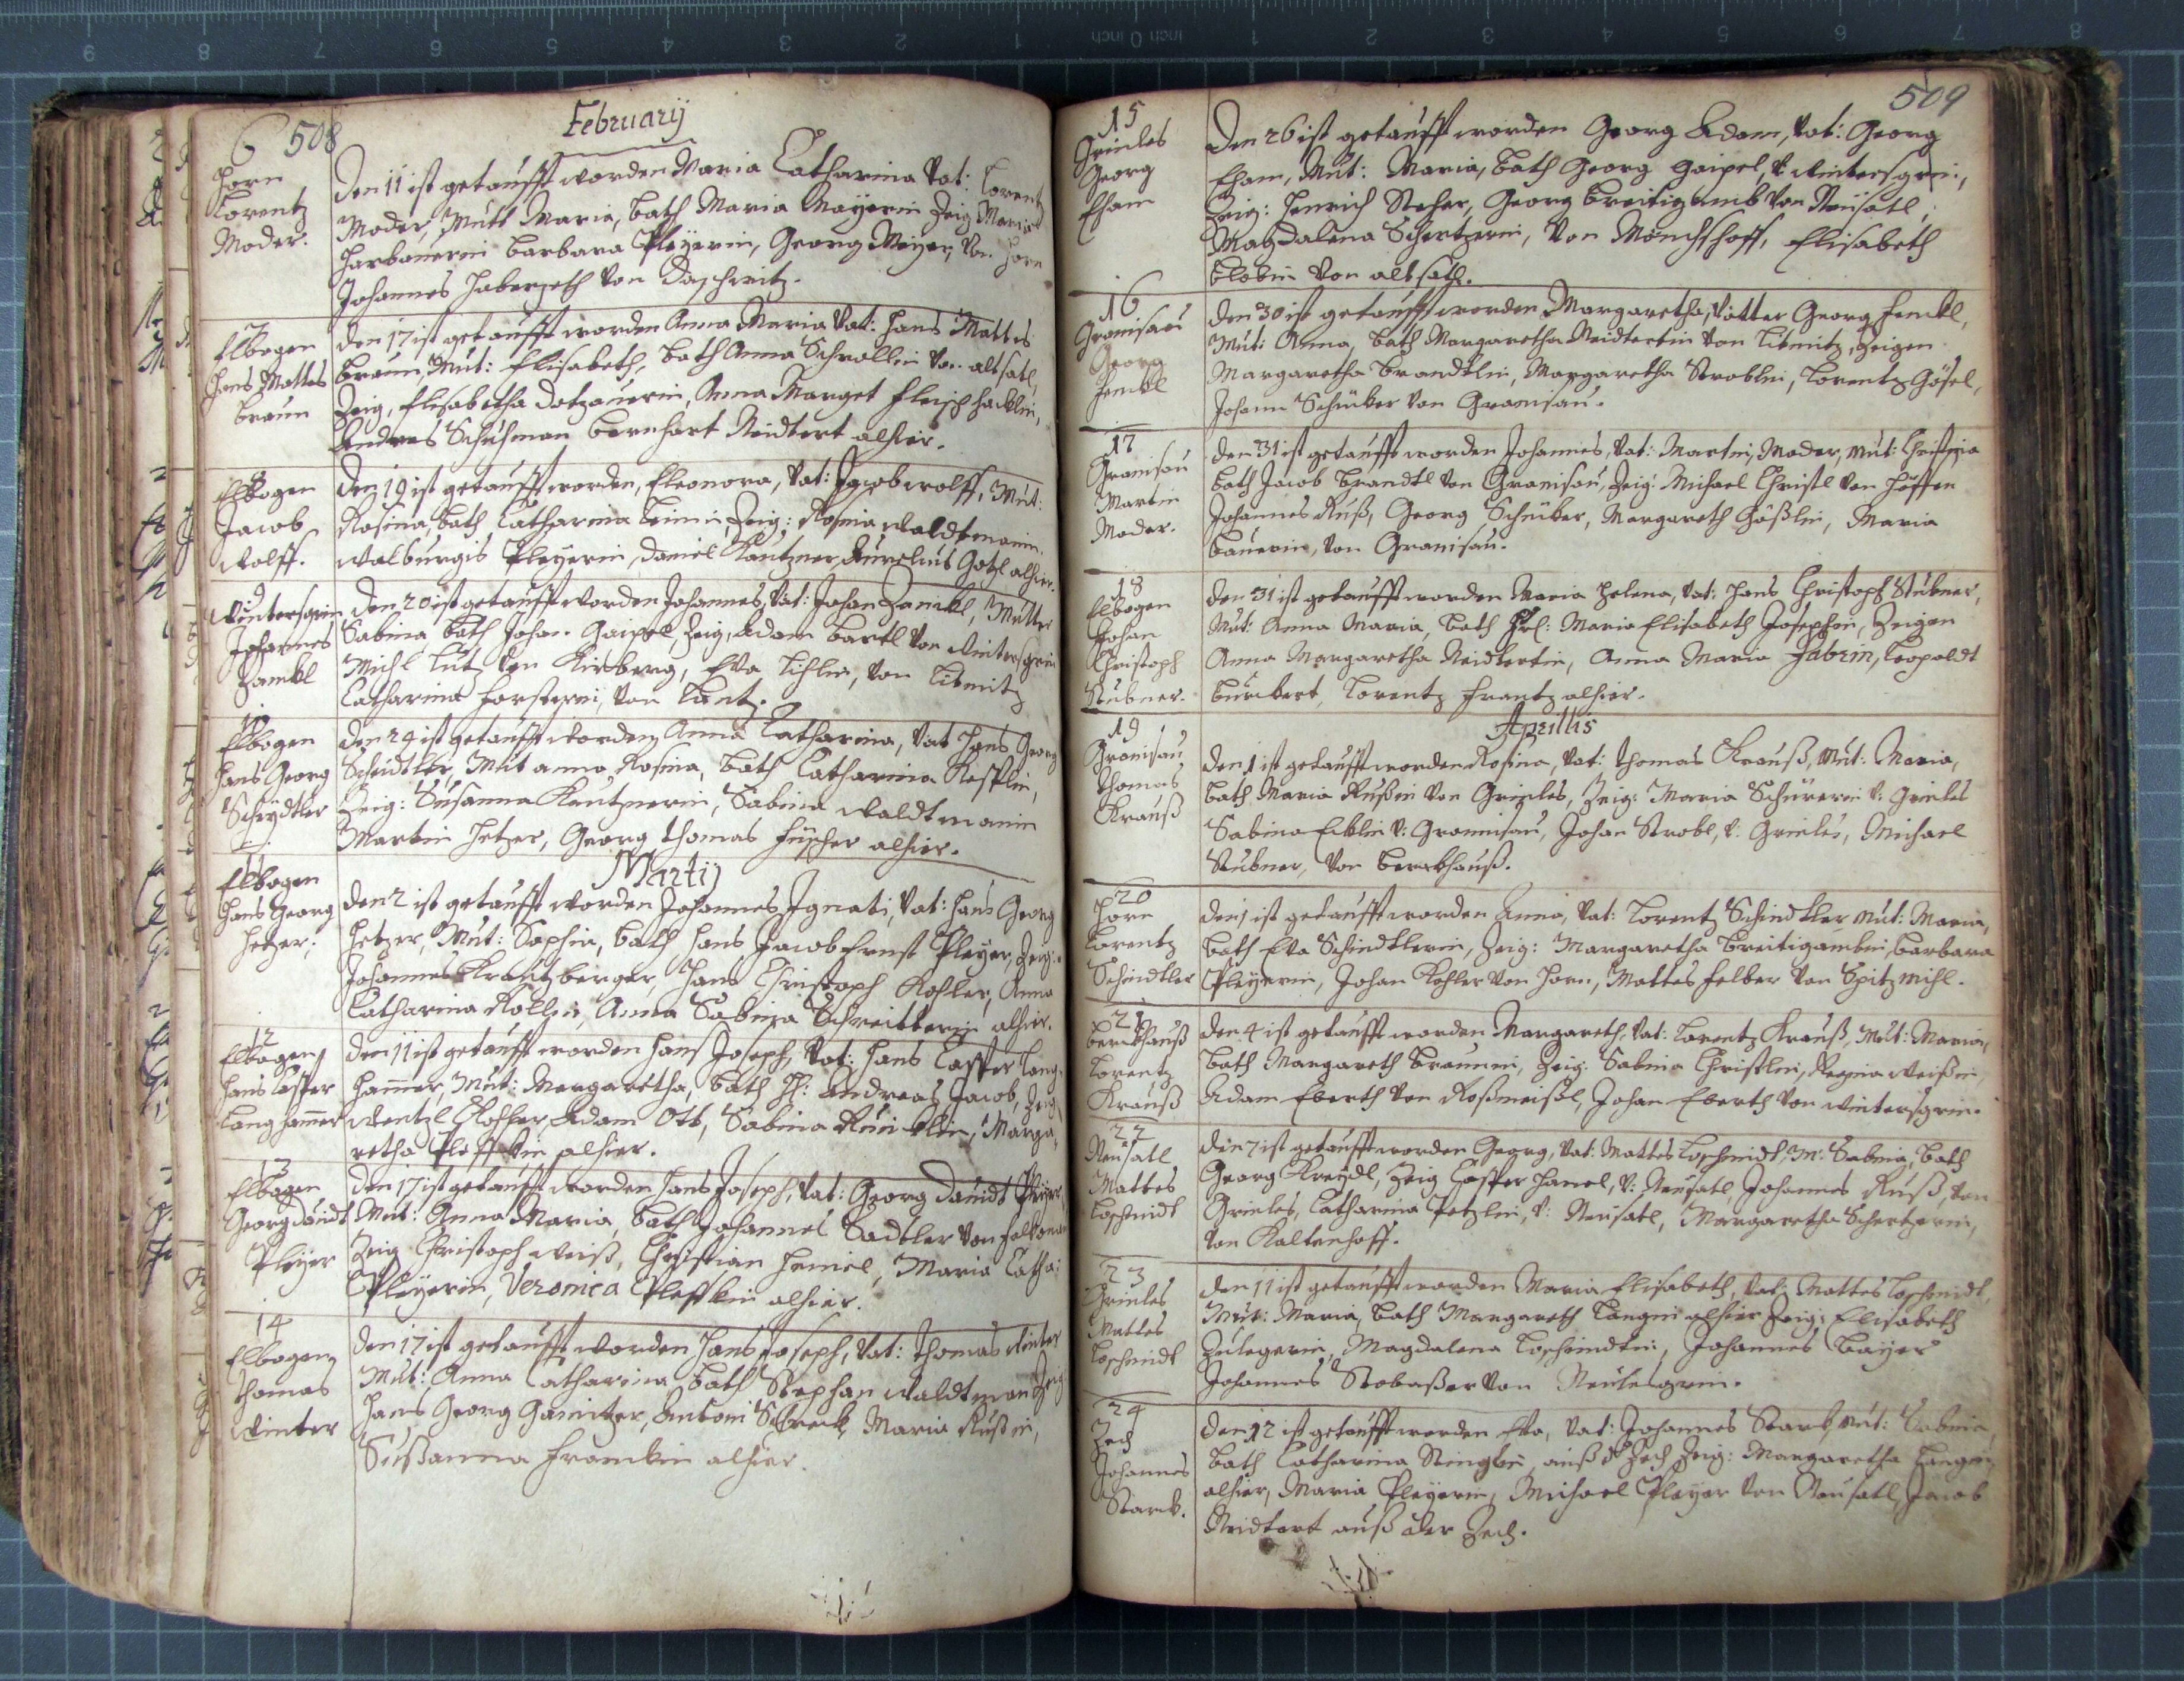 508
Februarij
6
Horn
Lorentz
Moder.
Den 11 ist getaufft worden Maria Catharina Vat: Lorentz
Moder, Mutt Maria, bath Maria Mayerin Zeig Maria
Harbauerin Barbara Pleyerin, Georg Meyer, Von Horn
Johannes Haberzeth von Daschwitz.
7
Elbogen
Hans Mattes
Braun
Den 17 ist getaufft worden Anna Maria Vat: Hans Mattes
Braun, Mut: Elisabeth, bath Anna Schrollin Von altsatl,
Zeig, Elisabetha Dotzauerin, Anna Marget Fleischhacklin,
Andreas Schuhman Bernhart Neidtert alhier.
8
Elbogen
Jacob
Wolff.
Den 19 ist getaufft worden, Eleonora, Vat: Jacob Wolff, Mut:
Rosina, bath Catharina Beimin, Zeig: Rosina Waldtmanin
Walburgis Pleyerin, Daniel Kautzner Aurelius Gotzl alhier.
9
Wintersgrin
Johannes
Zankl
Den 20 ist getaufft worden Johannes, Vat: Johan Zankl, Mutter
Sabina bath Johan Gaipel, Zeig, Adam Bartl Von Wintersgrin
Michl Lutz Von Kirsberg, Eva Tischlin, Von Litmitz
Catharina Forsterin, Von Lantz.
10
Elbogen
Hans Georg
Scheydtler
Den 24 ist getaufft worden Anna Catharina, Vat Hans Georg
Scheidtler, Mut anna Rosina, bath Catharina Kesslin,
Zeig: Susanna Kautznerin, Sabina Waldtmanin
Martin Hetzer, Georg Thomas Fischer alhier.
Martij
11
Elbogen
Hans Georg
Hetzer.
Den 2 ist getaufft worden Johannes Ignati, Vat: Hans Georg
Hetzer, Mut: Sophia, bath Hans Jacob Ernst Pleyer, Zeig:
Johannes Krautzberger, Hans Christoph Kohler, Anna
Catharina Kollin, Anna Sabina Schreitterin alhier.
12
Elbogen
Hans Casper
Langhamer
Den 11 ist getaufft worden Hans Joseph, Vat: Hans Casper Lang,
hamer, Mut: Margaretha, bath H: Andreas Jacob, Zeig
Wentzl Kohler Adam Ott, Sabina Künklin, Marga,
retha Pleffkin alhier.
13
Elbogen
Georg David
Pleyer
Den 17 ist getaufft worden Hans Joseph, Vat: Georg David Pleyer,
Mut: Anna Maria, bath Johannes Sadtler Von Falkenau
Zeig Christoph Weiß, Christian Heniel, Maria Catha:
Pleyerin, Veronica Pleffkin alhier.
14
Elbogen
Thomas
Winter
Den 17 ist getaufft worden Hans Joseph, Vat: Thomas Winter
Mut: Anna Catharina bath Stephan Waldtman Zeig:
Hans Georg Gamitzer, Antoni Schreck, Maria Rußin,
Sussanna Franckin alhier.
509
15
Grinles
Georg
Eham
Den 26 ist getaufft worden Georg Adam, Vat: Georg
Eham, Mut: Maria, bath Georg Gaipel, V: Wintersgrin,
Zeig: Henrich Steher, Georg Breitigamb Von Neusatl,
Magdalena Schertzerin, Von Mönchhoff, Elisabeth
Clobin Von altsatl.
16
Granisau
Georg
Henkl
Den 30 ist getaufft worden Margaretha, Vatter Georg Henkl,
Mut: Anna, bath Margaretha Neidtertin Von Litmitz, Zeigen
Margaretha Brandtlin, Margaretha Stroblin, Lorentz Gößel,
Johann Schücker Von Granisau.
17
Granisau
Martin
Moder.
Den 31 ist getaufft worden Johannes, Vat: Martin, Moder, Mut: Christina
bath Jacob Brandtl Von Granisau, Zeig: Michael Christl Von Höffen
Johannes Ruß, Georg Schücker, Margareth Gößlin, Maria
Bauerin, Von Granisau.
18
Elbogen
Johan
Christoph
Stubner.
Den 31 ist getaufft worden Maria Helena, Vat: Hans Christoph Stubner,
Mut: Anna Maria, bath Frl: Maria Elisabeth Josephin, Zeigen
Anna Margaretha Neidtertin, Anna Maria Fabrin, Leopoldt
Burckert, Lorentz Frantz alhier.
Aprillis
19
Granisau
Thomas
Krauß
Den 1 ist getaufft worden Rosina, Vat: Thomas Krauß, Mut: Maria,
bath Maria Rußin Von Grinles, Zeig: Maria Schürerin V: Grinles
Sabina Ecklin V: Granisau, Johan Strobl, V: Grinles, Michael
Stubner, Von Berckhauß.
20
Horn
Lorentz
Schindtler
Den 1 ist getaufft worden Anna, Vat: Lorentz Schindtler Mut: Maria,
bath Eva Schindtlerin, Zeig: Margaretha Breitigambin, Barbara
Pleyerin, Johan Kohler Von Horn, Mattes Felber Von Spitzmihl.
21
Berckhauß
Lorentz
Krauß
Den 4 ist getaufft worden Margareth, Vat: Lorentz Krauß, Mut: Maria,
bath Margareth Braunin, Zeig: Sabina Christlin, Regina Weißin,
Adam Eberth Von Roßmeißl, Johan Eberth Von Wintersgrin.
22
Neusatl
Mattes
Loschmidt
Den 7 ist getaufft worden Georg, Vat: Mattes Loschmidt, M: Sabina, bath
Georg Kreydl, Zeig Casper Hanel, V: Neusatl, Johannes Ruß, Von
Grinles, Catharina Petzlin, V: Neusatl, Margaretha Schertzerin,
Von Kaltenhoff.
23
Grinles
Mattes
Loschmidt
Den 11 ist getaufft worden Maria Elisabeth, Vat: Mattes Loschmidt,
Mut: Maria, bath Margareth Langin alhier Zeig: Elisabeth
Zulegerin, Magdalena Loschmidtin, Johannes Bayer
Johannes Stobasser Von Neulesgrin.
24
Zech
Johannes
Starck.
Den 12 ist getaufft worden Eva, Vat: Johannes Starck, Mut: Sabina,
bath Catharina Stinglin, auß d Zech Zeig: Margaretha Langin
alhier, Maria Pleyerin, Michael Pleyer Von Neusatl, Jacob
Neidtert auß der Zech.